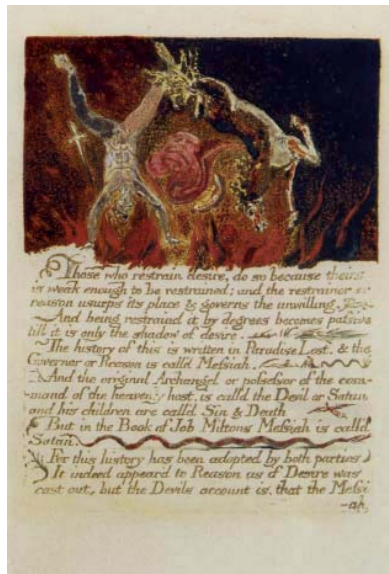 Those who restrain desire, do so because theirs
is weak enough to be restrained; and the restrainer or
reason usurps its place & governs the unwilling.
And being restraind it by degrees becomes passive
till it is only the shadow of desire.
The history of this is written in Paradise Lost. & the
Governor or Reason is call'd Messiah.
And the original Archangel or possessor of the com-
mand of the heavenly host, is calld the Devil or Satan
and his children are call'd Sin & Death
But in the Book of Job Miltons Messiah is call'd
Satan.
For this history has been adopted by both parties
It indeed appear'd to Reason as if Desire was
cast out, but the Devils account is, that the Messi
-ah